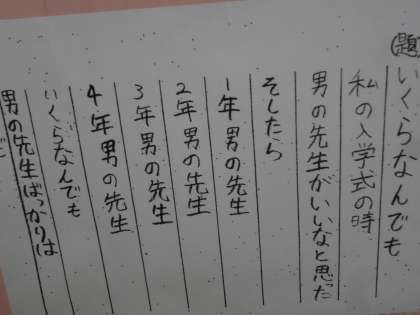 (題)いくらなんでも
私の入学式の時
男の先生がいいなと思った
そしたら
1年男の先生
2年男の先生
3年男の先生
4年男の先生
いくらなんでも
男の先生ばっかりは